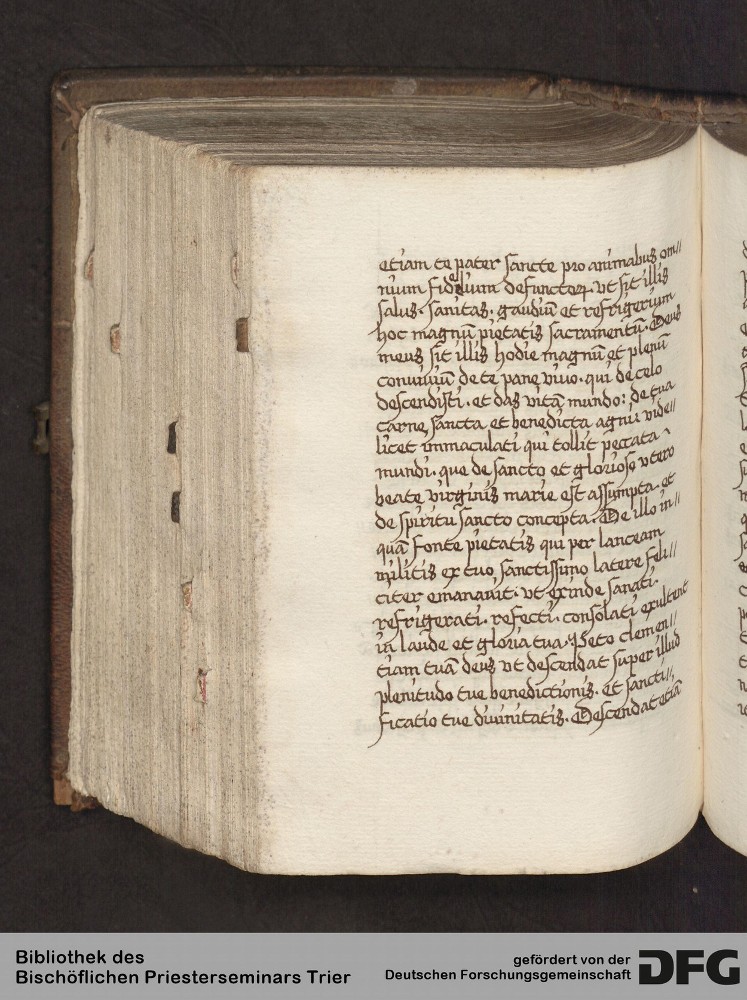 etiam te pater sancte pro animabus om//
nium fidelium defunctoꝝ. vt sit illis
salus. sanitas. gaudiū et refrigerium
hoc magnū pietatis sacramentū. Deus
meus sit illis hodie magnū et plenū
conuiuiū de te pane viuo. qui de celo
descendisti. et das vitā mundo: de tua
carne sancta et benedicta agni vide//
licet immaculati qui tollit peccata
mundi. que de sancto et glorioso vtero
beate virginis marie est assumpta. et
de spiritu sancto concepta. De illo in//
quā fonte pietatis qui per lanceam
militis ex tuo sanctissimo latere feli//
citer emanauit. vt exinde sanati.
refrigerati. refecti. consolati exultent
in laude et gloria tua. Peto clemen//
tiam tuā deus vt descendat super illud
plenitudo tue benedictionis. et sancti//
ficatio tue diuinitatis. Descendat etiā
Bibliothek des
Bischöflichen Priesterseminars Trier
gefördert von der
Deutschen Forschungsgemeinschaft
DFG